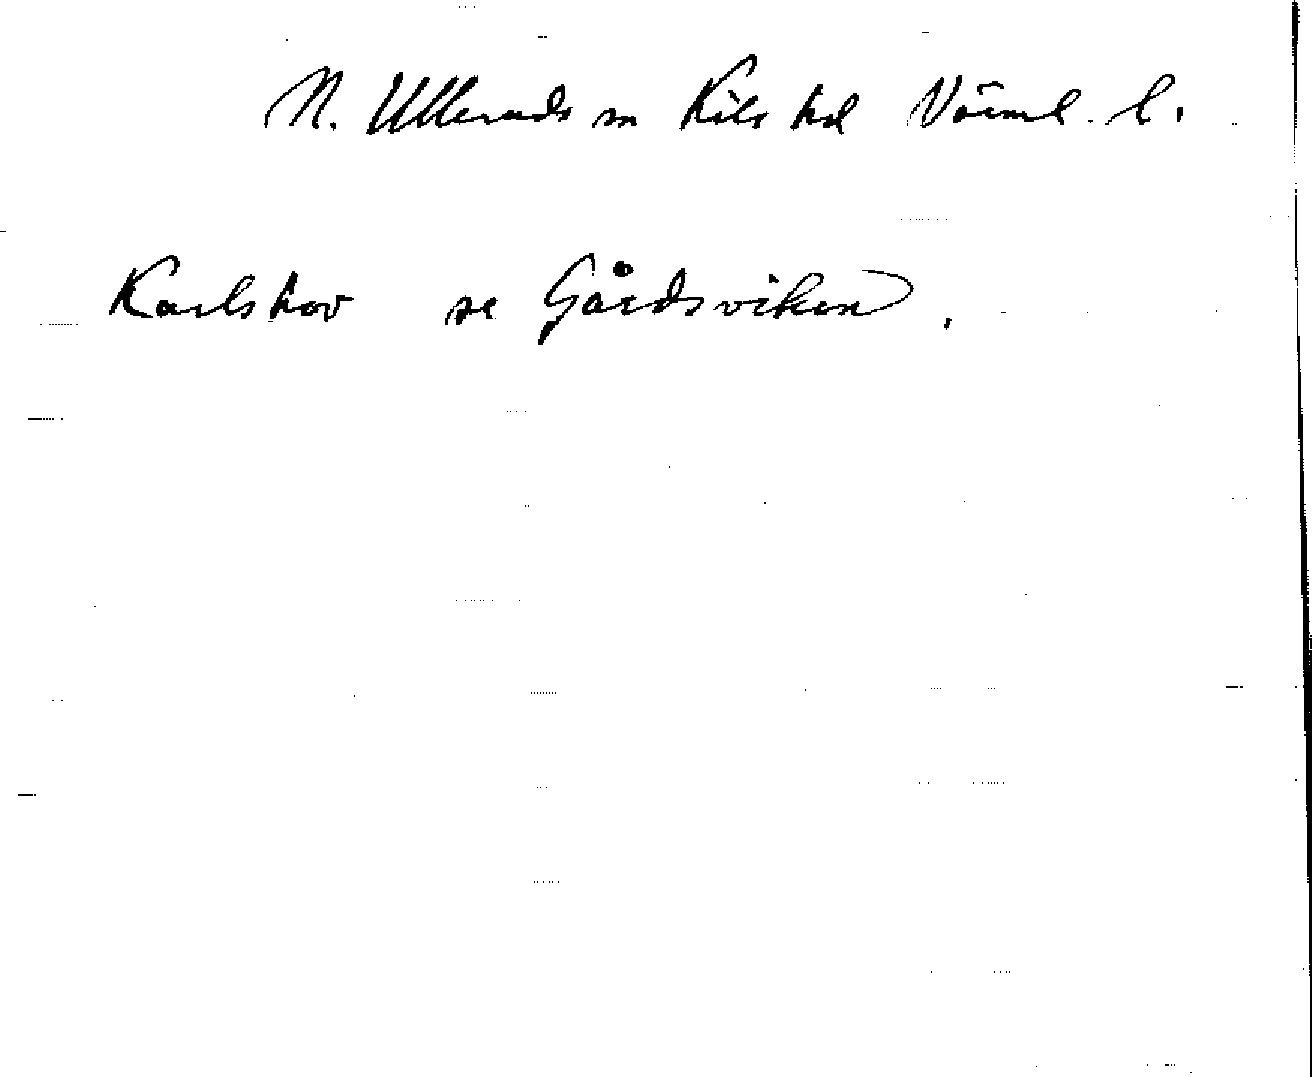 N. Ulleruds sn Kils hd Värml. l.
Karlshov se Gårdsviken.